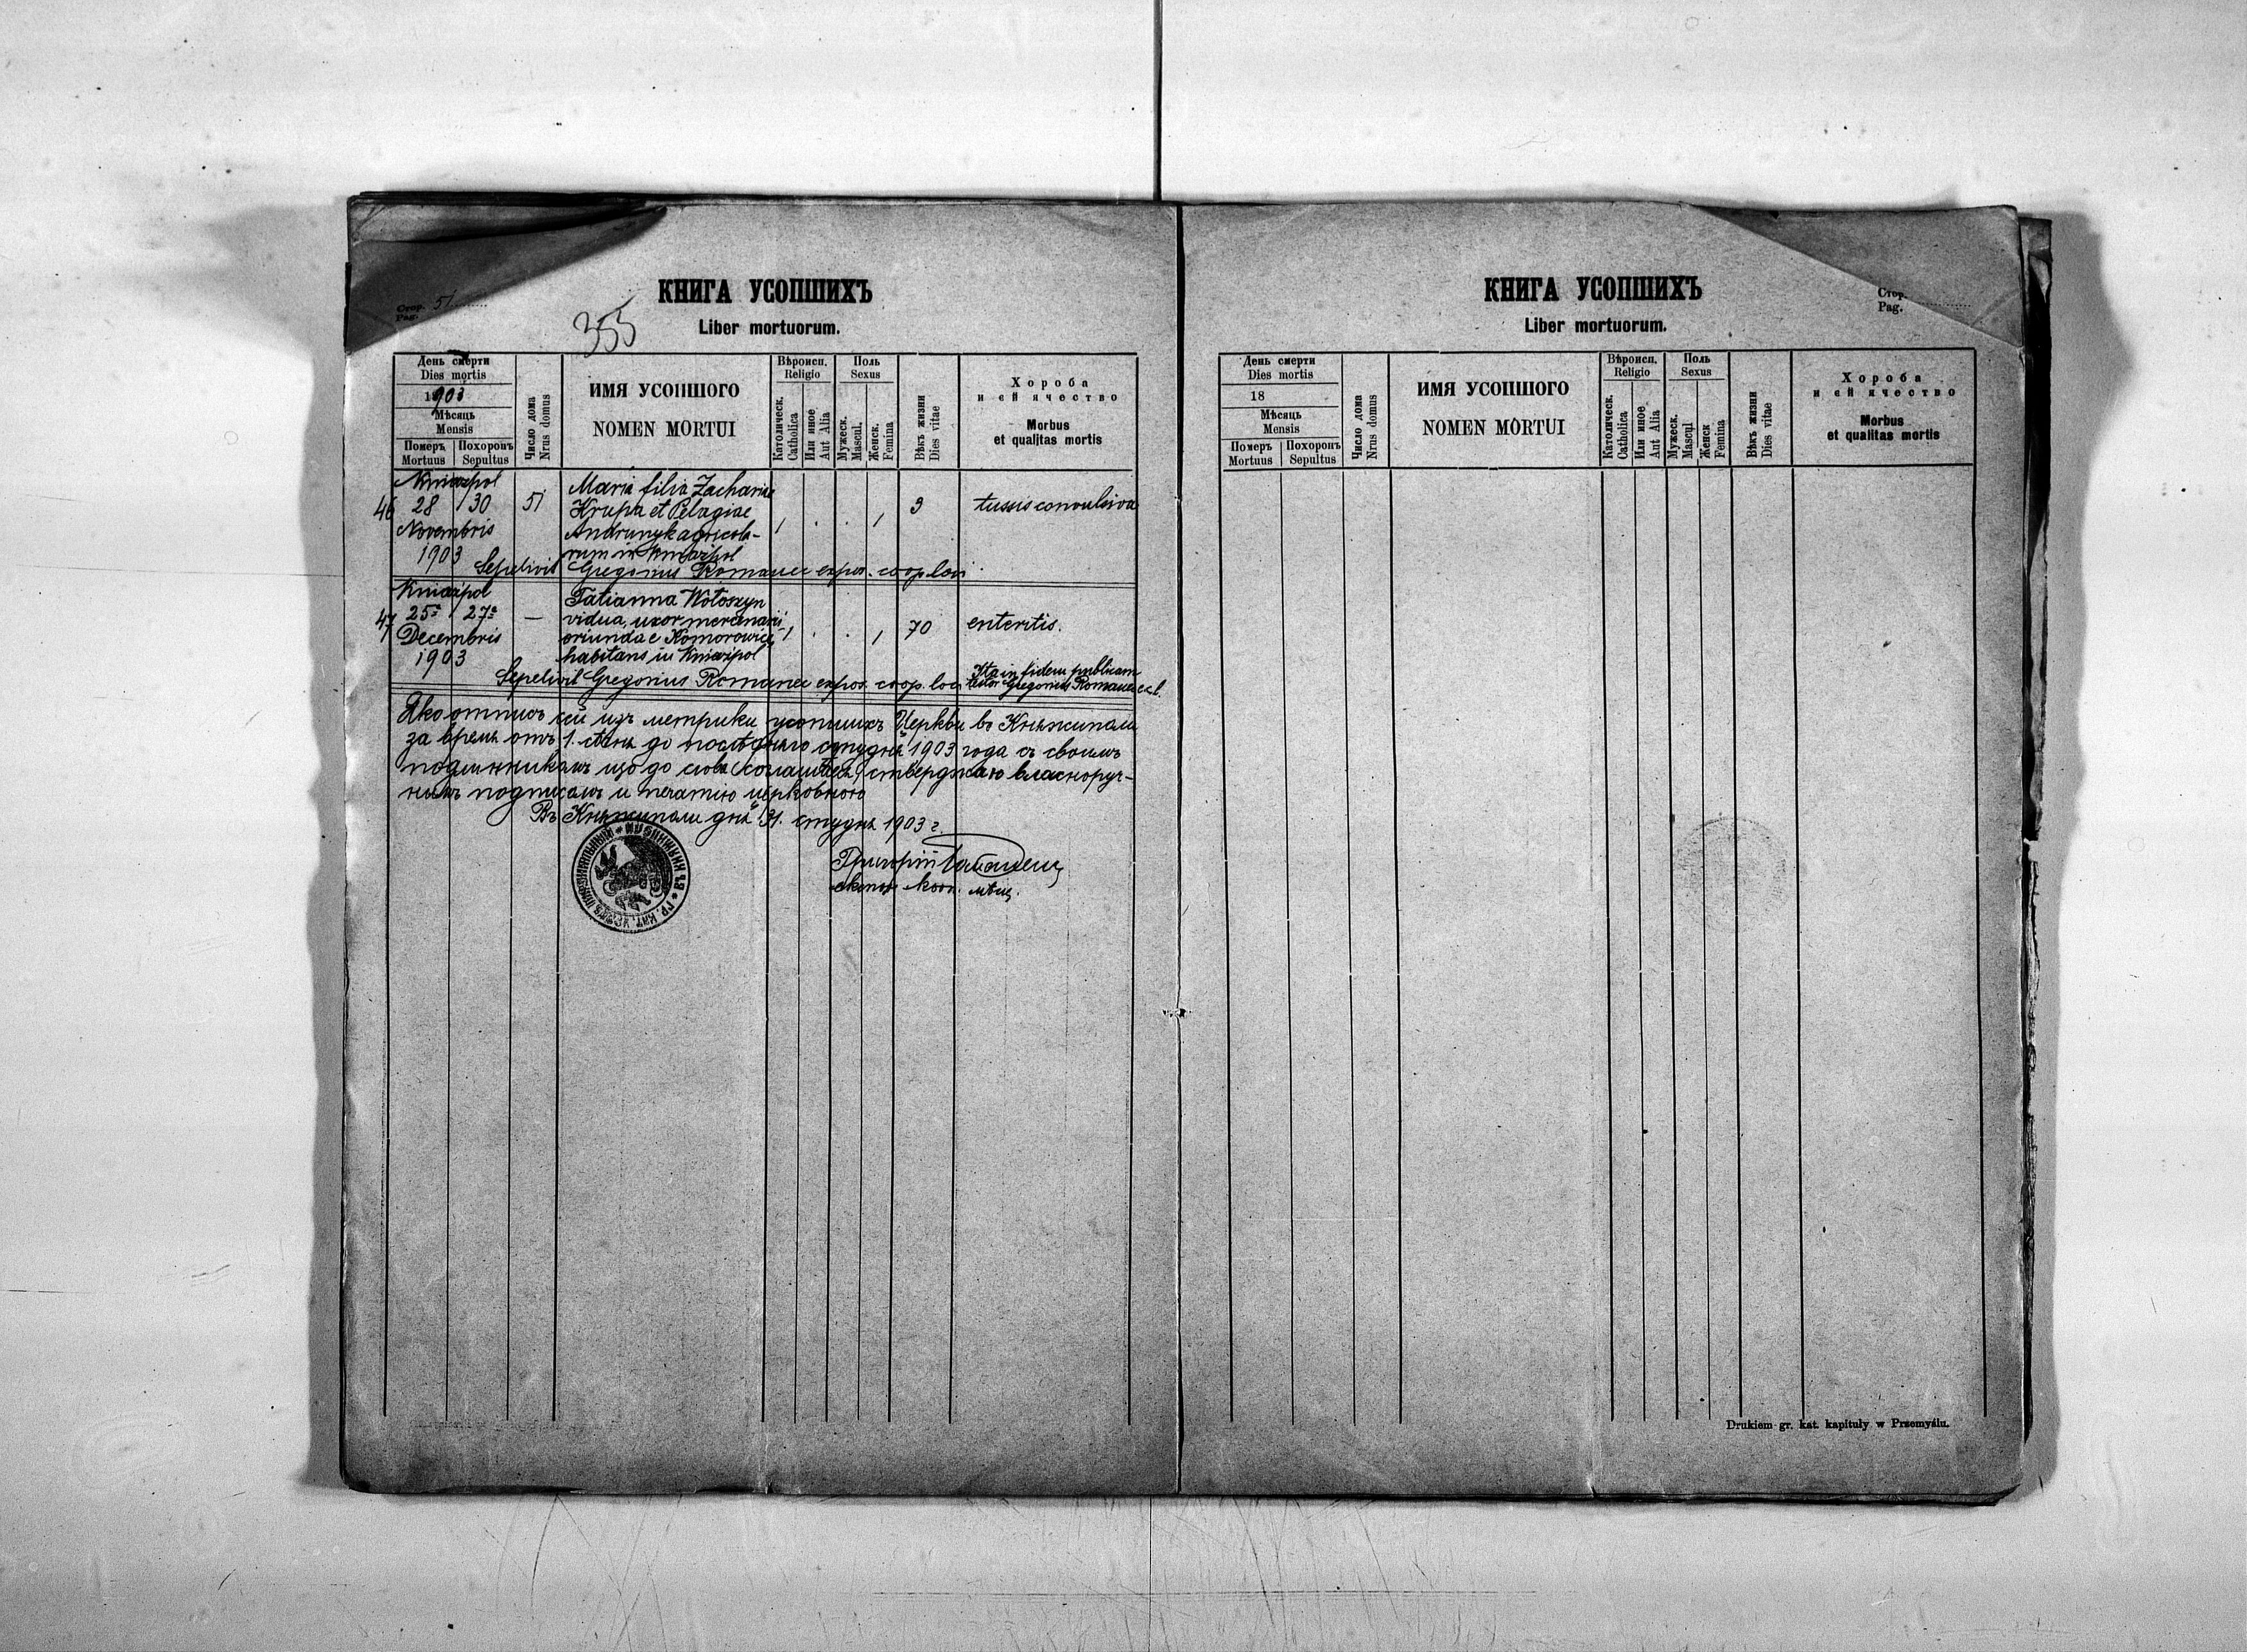 Стор. 51
Pag.
КНИГА УСОПШИХЪ
355
Liber mortuorum.
День смерти
Dies mortis
1903
Мѣсяць
Mensis
Померъ Похоронъ
Mortuus Sepultus
Число дома
Nrus domus
ИМЯ УСОПШОГО
NOMEN MORTUI
Вѣроисп.
Religio
Католическ.
Catholica
Или иное
Aut Alia
Поль
Sexus
Мужеск.
Mascul.
Женск.
Femina
Вѣкъ жизни
Dies vitae
Хороба
и ей ячество
Morbus
et qualitas mortis
Kniażpol
46 28 30 51 Maria filia Zachariae
Krupa et Pelagiae 1 . . 1 9 tussis convulsiva
Novembris Andrunyk agricola-
1903 rum in Kniażpol
Sepelivit Gregorius Romanec expos. coop. loci.
Kniażpol Tatianna Wołoszyn
47 25a 27a — vidua, uxor mercenarii
Decembris oriunda e Komorowice 1 . . 1 70 enteritis.
1903 habitans in Kniażpol
Sepelivit Gregorius Romanec expos. coop. loci
Ita in fidem publicam
testor Gregorius Romanec
Яко отписъ сей изъ метрики усопшихъ Церкви въ Княжиполи
за время отъ 1. сѣчня до послѣдняго студня 1903 года съ своимъ
подлинникомъ що до слова согласуеся, стверджаю власноруч-
нымъ подписомъ и печатію церковною
Въ Княжиполи дня 31. студня 1903 г.
Григорій Романець
експ. кооп. мѣсц.
КНИГА УСОПШИХЪ
Liber mortuorum.
Стор.
Pag.
День смерти
Dies mortis
18
Мѣсяць
Mensis
Померъ Похоронъ
Mortuus Sepultus
Число дома
Nrus domus
ИМЯ УСОПШОГО
NOMEN MORTUI
Вѣроисп.
Religio
Католическ.
Catholica
Или иное
Aut Alia
Поль
Sexus
Мужеск.
Mascul
Женск
Femina
Вѣкъ жизни
Dies vitae
Хороба
и ей ячество
Morbus
et qualitas mortis
Drukiem gr. kat. kapituły w Przemyślu.